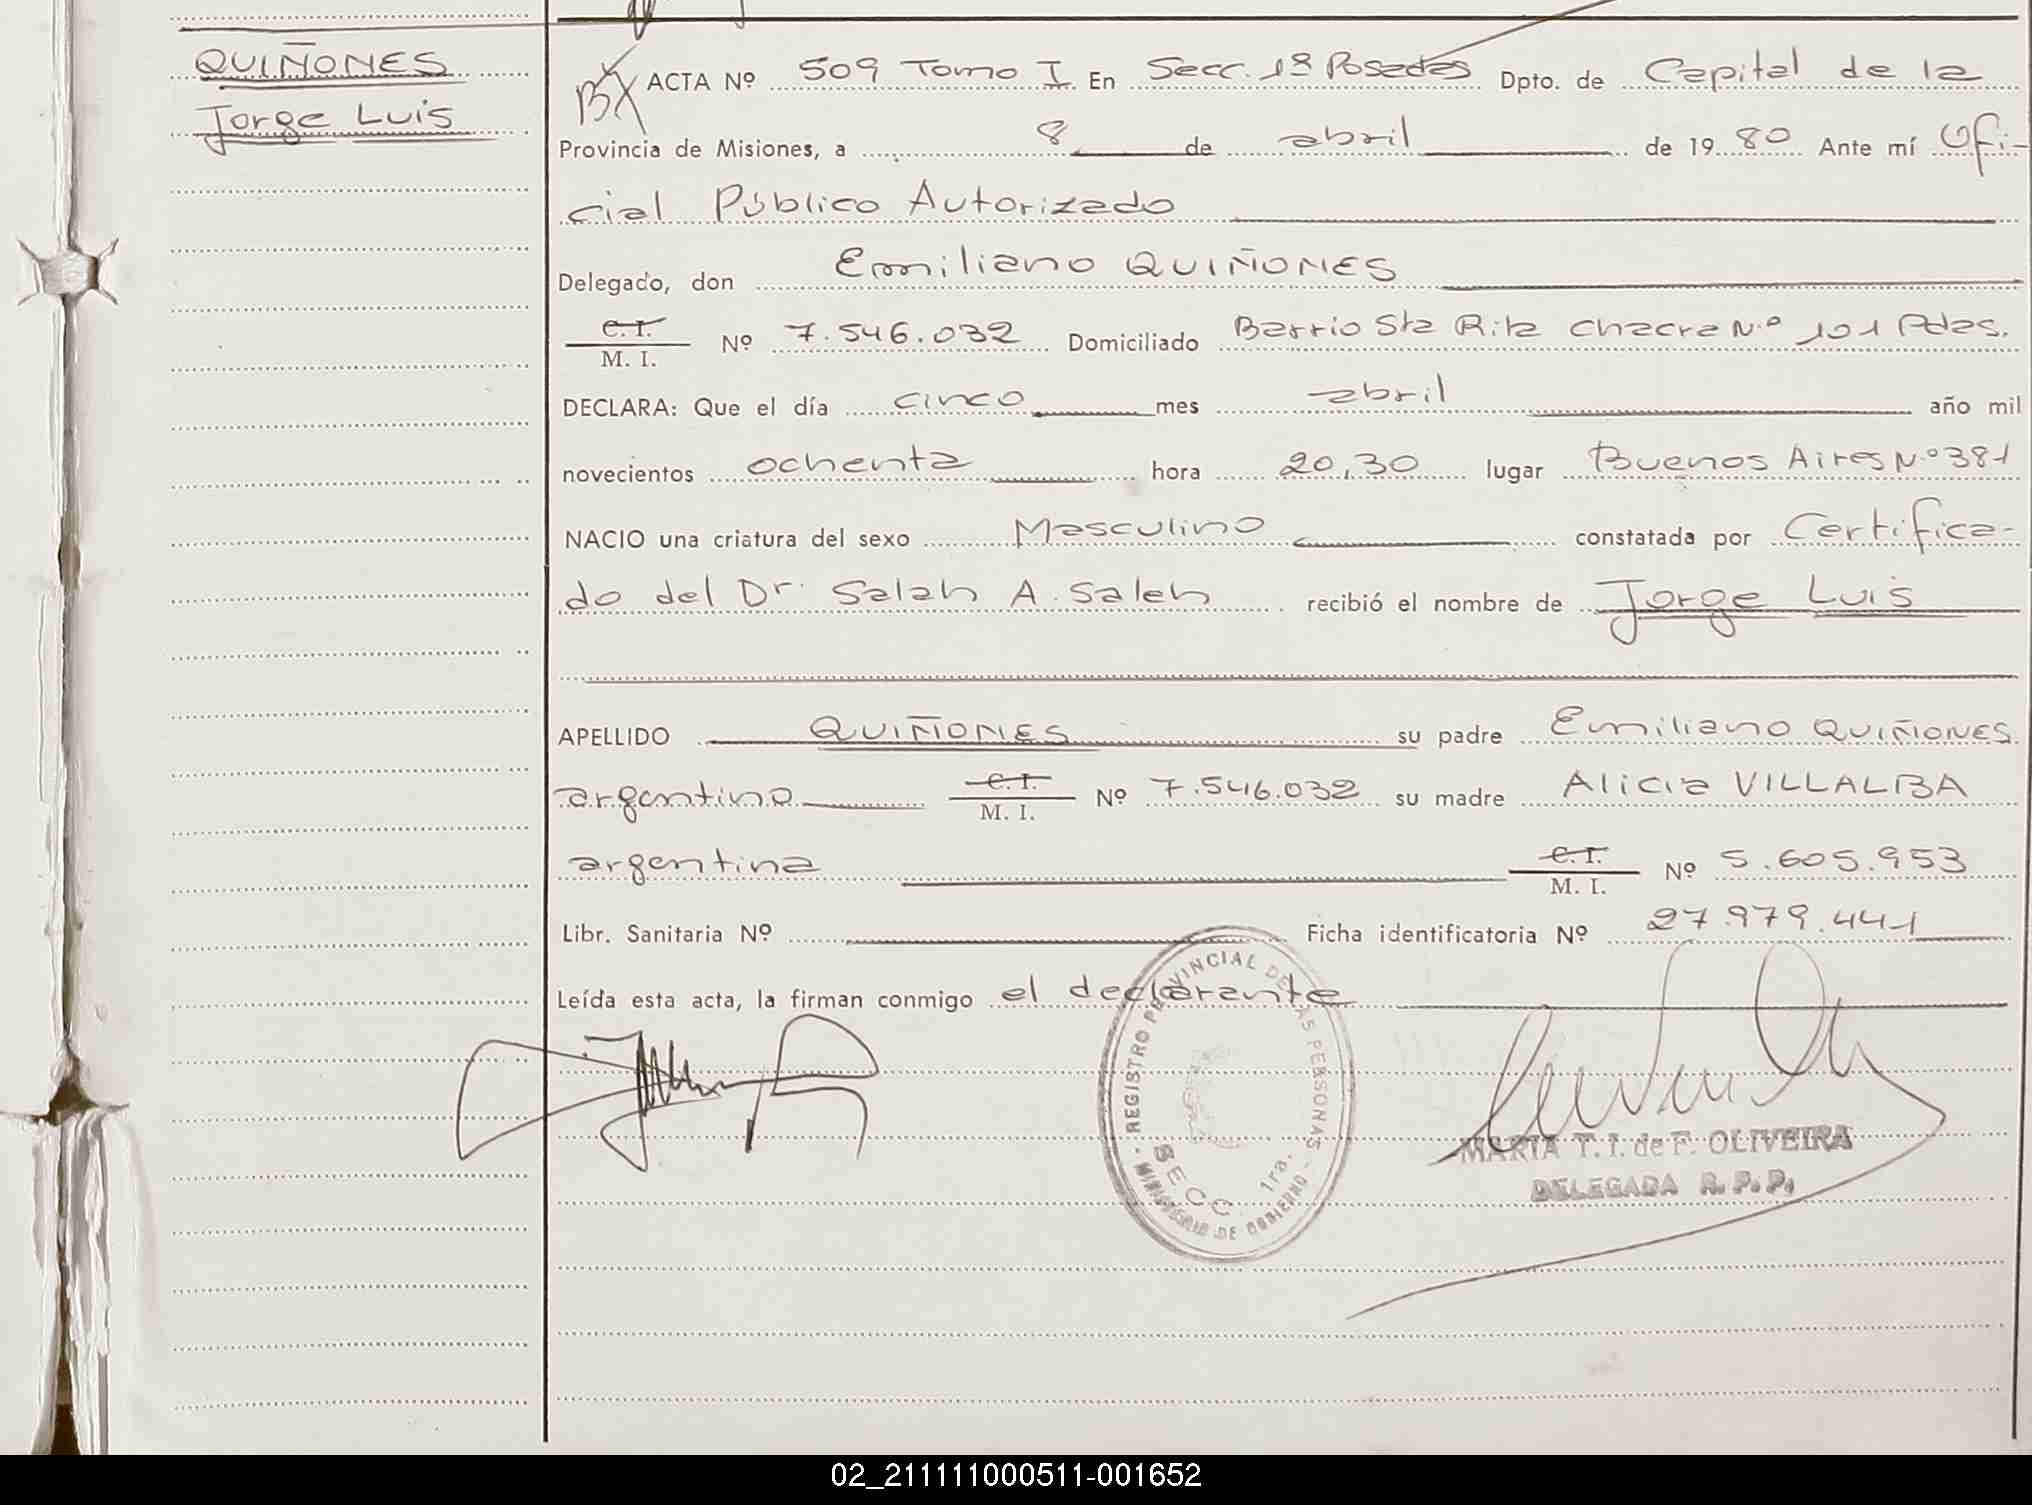 QUIÑONES
Jorge Luis
ACTA Nº 509 Tomo I En Secc. 1ª Posadas Dpto. de Capital de la
Provincia de Misiones, a 8 de abril de 1980 Ante mí Ofi-
cial Público Autorizado
Delegado, don Emiliano QUIÑONES
C. I.
M. I. Nº 7.546.032 Domiciliado Barrio Sta Rita Chacra N.º 101 Pdas.
DECLARA: Que el día cinco mes abril año mil
novecientos ochenta hora 20,30 lugar Buenos Aires N.º 381
NACIO una criatura del sexo Masculino constatada por Certifica-
do del Dr. Salah A. Saleh recibió el nombre de Jorge Luis
APELLIDO QUIÑONES su padre Emiliano QUIÑONES
argentino C. I. M. I. Nº 7.546.032 su madre Alicia VILLALBA
argentina C. I. M. I. Nº 5.605.953
Libr. Sanitaria Nº Ficha identificatoria Nº 27.979.441
Leída esta acta, la firman conmigo el declarante
REGISTRO PROVINCIAL DE LAS PERSONAS
SECC. 1ra.
MINISTERIO DE GOBIERNO
MARIA T. I. de F. OLIVEIRA
DELEGADA R. P. P.
02_211111000511-001652